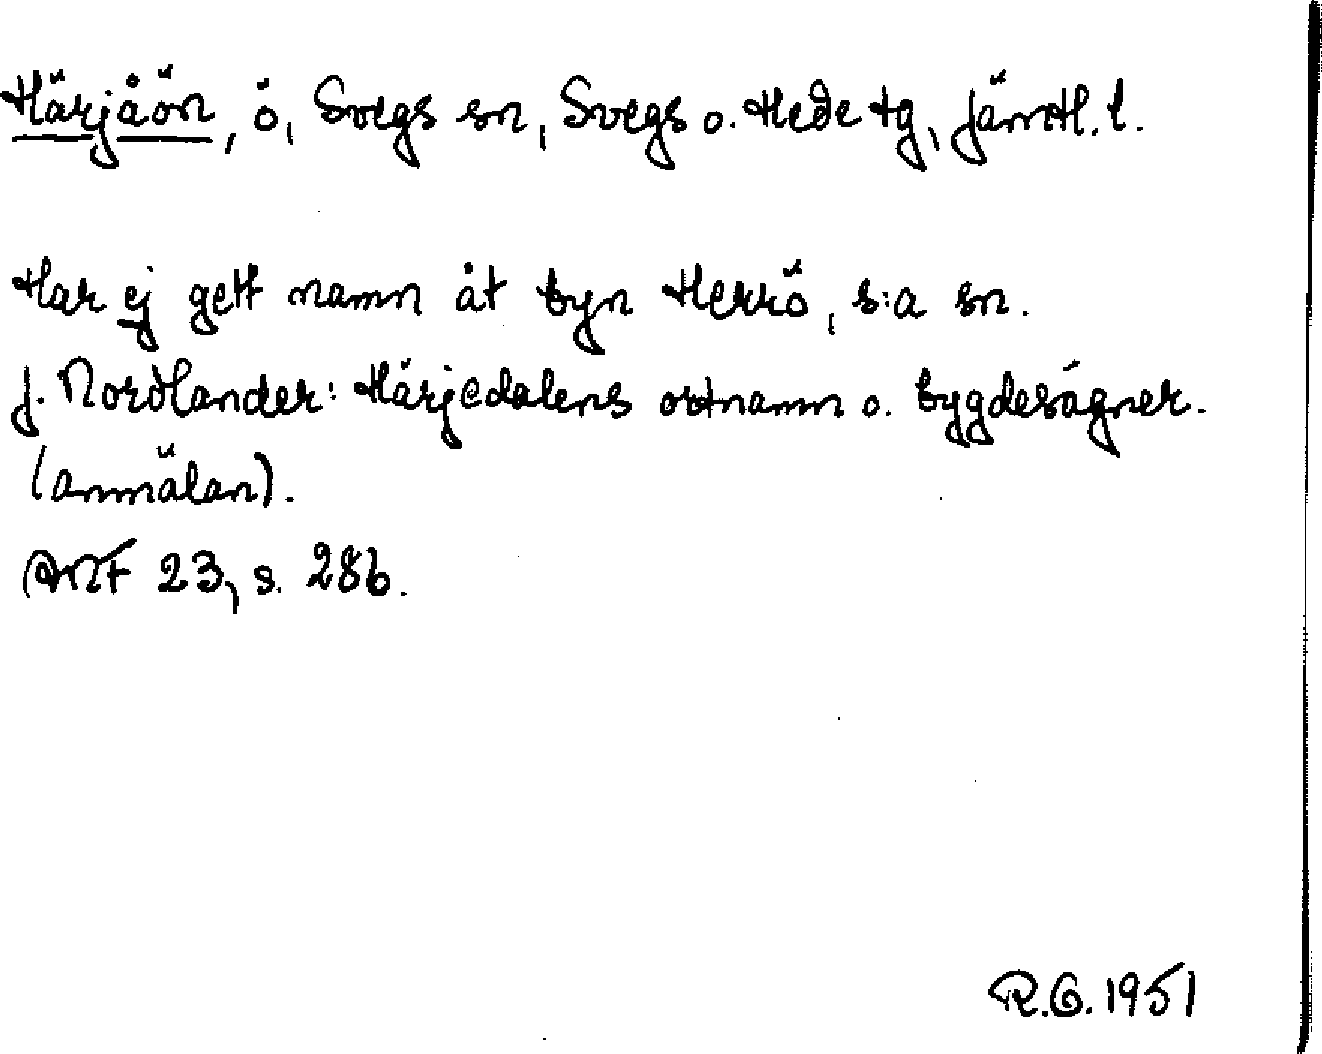 Härjåön, ö, Svegs sn, Svegs o. Hede tg, Jämtl. l.
Har ej gett namn åt byn Herrö, s:a sn.
J. Nordlander: Härjedalens ortnamn o. bygdesägner.
(anmälan).
ANF 23, s. 286.
R.G. 1951